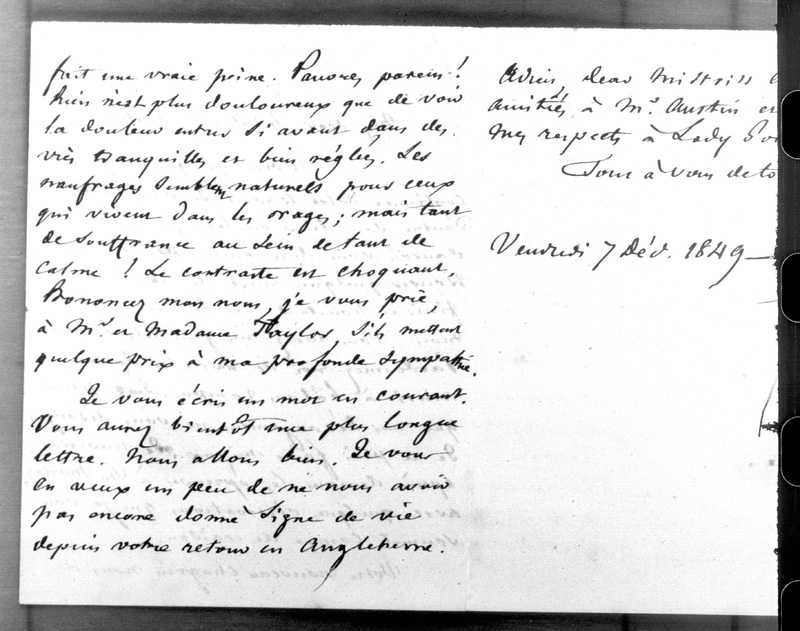 fait une vraie peine. Pauvres parens !
Rien n'est plus douloureux que de voir
la douleur entrer si avant dans des
vies tranquilles et bien réglées. Les
naufrages semblent naturels pour ceux
qui vivent dans les orages ; mais tant
de souffrance au sein de tant de
calme ! Le contraste est choquant.
Prononcez mon nom, je vous prie,
à Mr. et Madame Taylor s'ils mettent
quelque prix à ma profonde sympathie.
Je vous écris un mot en courant.
Vous aurez bientôt une plus longue
lettre. Nous allons bien. Je vous
en veux un peu de ne nous avoir
pas encore donné signe de vie
depuis votre retour en Angleterre.
Adieu, dear Mistriss
amitiés à Mr. Austin et
mes respects à Lady
Tout à vous de
Vendredi 7 Déc. 1849